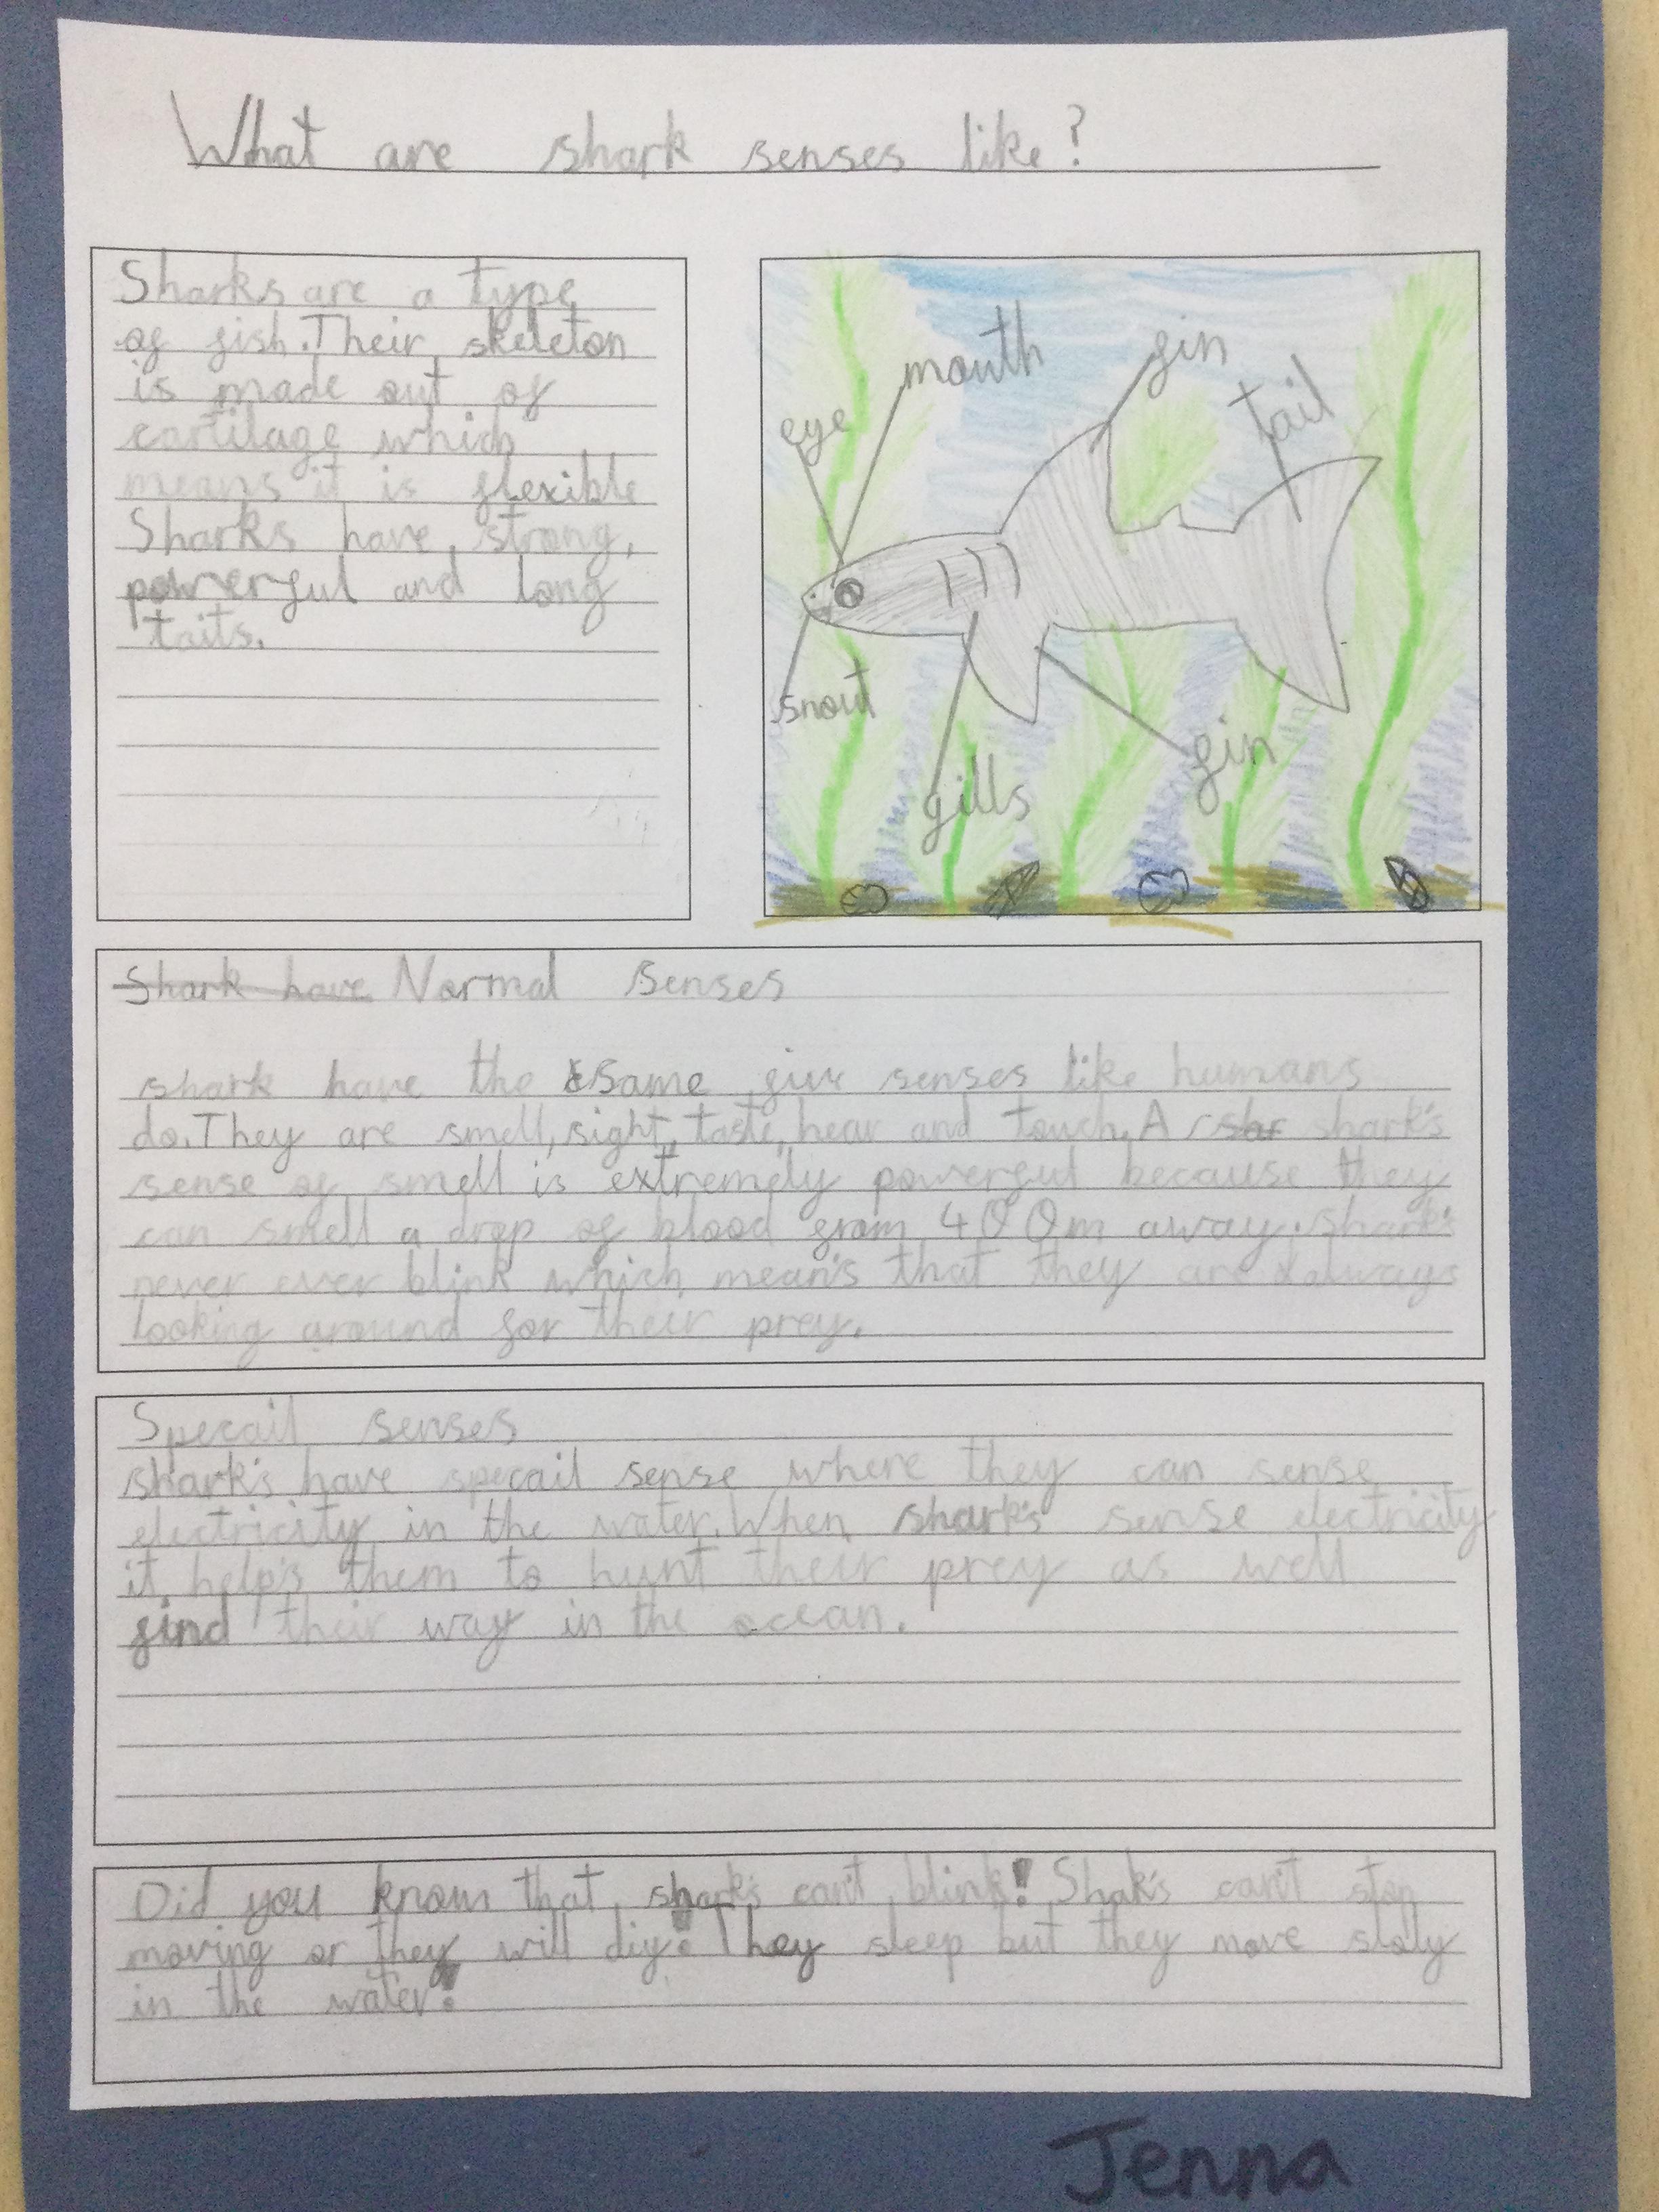 What are shark senses like?
Sharks are a type
of fish. Their skeleton
is made out of
cartilage which
means it is flexible
Sharks have strong,
powerful and long
tails.
mouth
fin
tail
eye
snout
gills
fin
Shark have Normal senses
shark have the same five senses like humans
do. They are smell, sight, taste, hear and touch. A shar shark's
sense of smell is extremely powerful because they
can smell a drop of blood from 400m away. shark's
never ever blink which mean's that they are always
looking around for their prey.
Specail senses
shark's have specail sense where they can sense
electricity in the water. When shark's sense electricity
it help's them to hunt their prey as well
find their way in the ocean.
Did you know that shark's can't blink! Shak's can't stop
moving or they will diy! They sleep but they move sloly
in the water!
Jenna